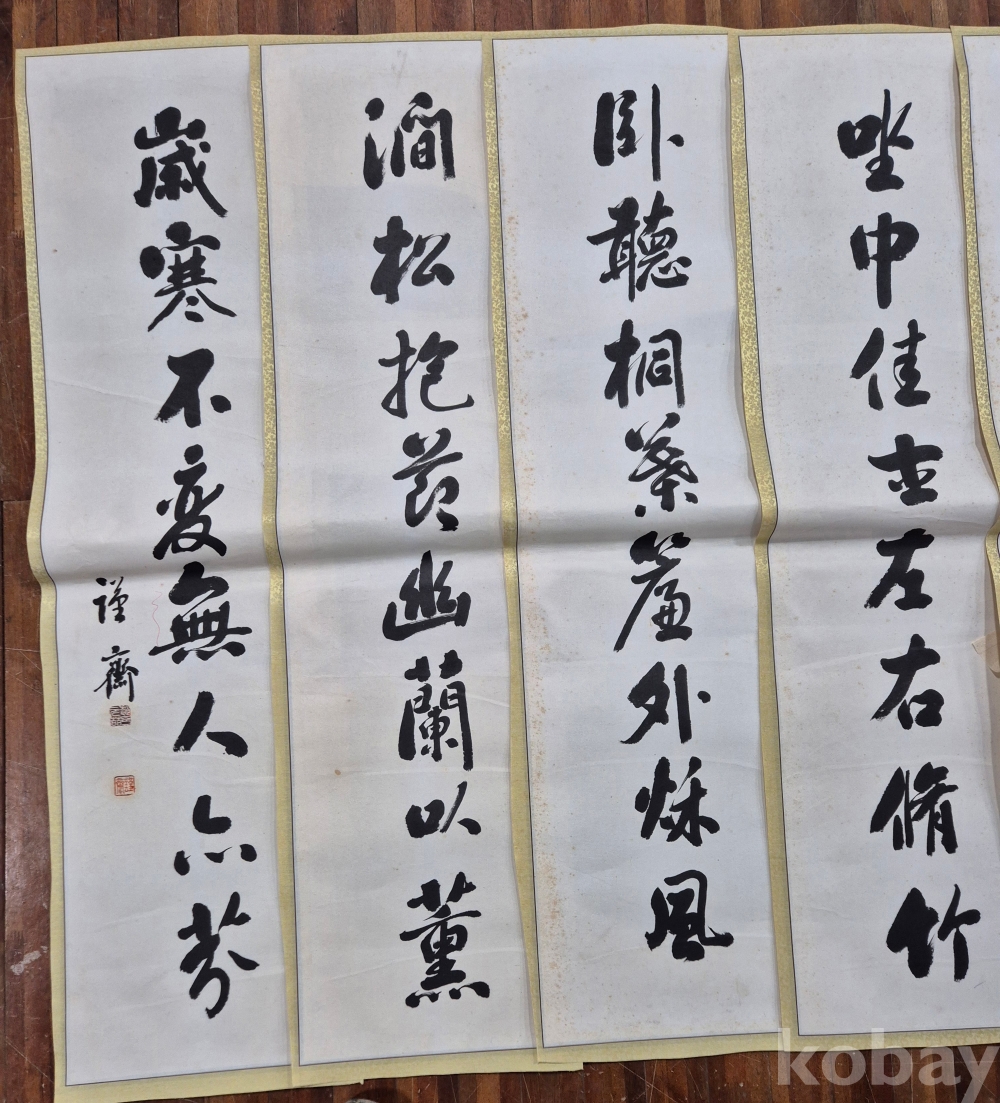 坐中佳士左右脩竹
臥聽桐葉簾外秌風
澗松抱節幽蘭以薰
歲寒不變無人亦芬
謹齋
kobay